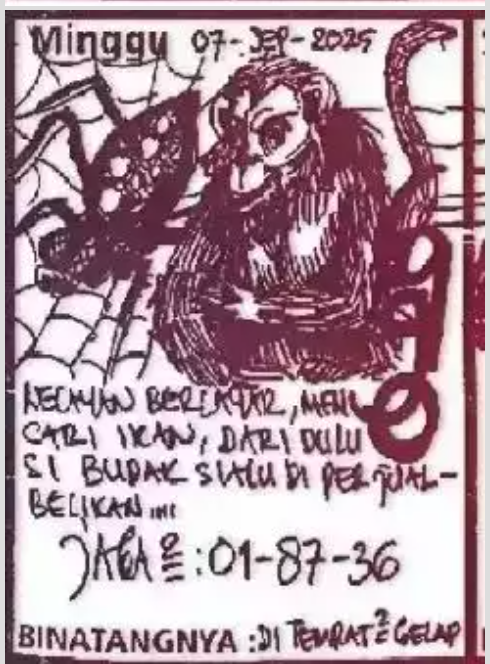 Minggu 07-SEP-2025
NELAYAN BERLAYAR, MEN
CARI IKAN, DARI DULU
SI BUDAK SLALU DI PERJUAL-
BELIKAN...
JAGA2:01-87-36
BINATANGNYA :DI TEMPAT2 GELAP